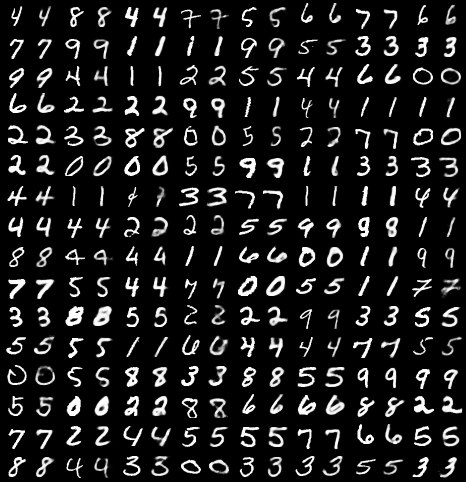 4 4 8 8 4 4 7 7 5 5 6 6 7 7 6 6
7 7 9 9 1 1 1 1 9 9 5 5 3 3 3 3
9 9 4 4 1 1 2 2 5 5 4 4 6 6 0 0
6 6 2 2 2 2 9 9 1 1 4 4 1 1 1 1
2 2 3 3 8 8 0 0 5 5 2 2 7 7 0 0
2 2 0 0 0 0 5 5 9 9 1 1 3 3 3 3
4 4 1 1 3 3 7 7 1 1 1 1 4 4
4 4 4 4 2 2 2 2 5 5 9 9 9 8 1 1
8 8 4 4 4 4 1 1 6 6 0 0 1 1 9 9
7 7 5 5 4 4 7 7 0 0 5 5 1 1 7 7
3 3 8 8 5 5 2 2 2 2 9 9 3 3 5 5
5 5 5 5 1 1 6 6 4 4 4 4 7 7 5 5
0 0 5 5 8 8 3 3 8 8 5 5 9 9 9 9
5 5 0 0 2 2 8 8 6 6 6 6 8 8 2 2
7 7 2 2 4 4 5 5 5 5 7 7 6 6 5 5
8 8 4 4 3 3 0 0 3 3 3 3 5 5 3 3